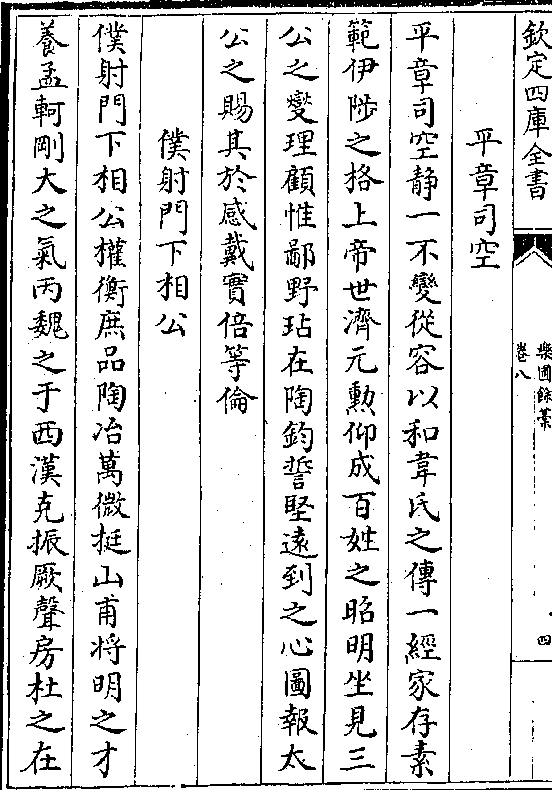 欽定四庫全書
樂圃餘藁
卷八
四
平章司空
平章司空静一不變從容以和韋氏之傳一經家存素
範伊陟之格上帝世濟元勲仰成百姓之昭明坐見三
公之燮理顧惟鄙野玷在陶鈞誓堅遠到之心圖報太
公之賜其於感戴實倍等倫
僕射門下相公
僕射門下相公權衡庶品陶冶萬微挺山甫将明之才
養孟軻剛大之氣丙魏之于西漢克振厥聲房杜之在